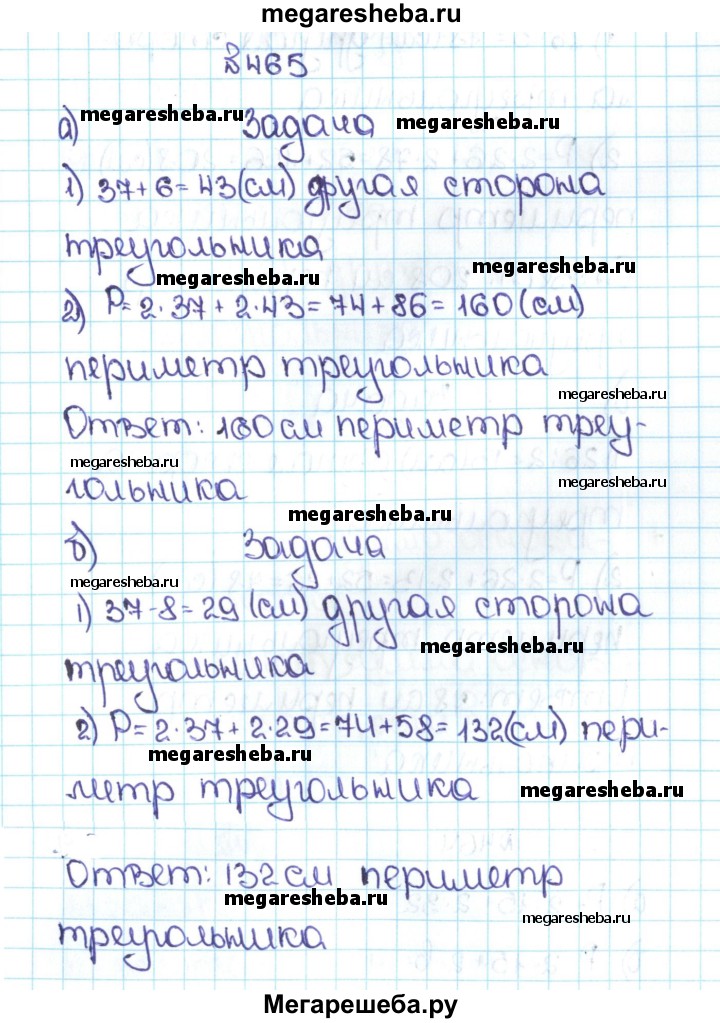 megaresheba.ru
№465
а) megaresheba.ru Задача megaresheba.ru
1) 37+6=43(см) другая сторона
треугольника
megaresheba.ru
megaresheba.ru
2) P=2·37+2·43=74+86=160(см)
периметр треугольника
megaresheba.ru
Ответ: 160см периметр треу-
megaresheba.ru
гольника
megaresheba.ru
megaresheba.ru
б) Задача
megaresheba.ru
1) 37-8=29(см) другая сторона
megaresheba.ru
треугольника
2) P=2·37+2·29=74+58=132(см) пери-
megaresheba.ru
метр треугольника megaresheba.ru
Ответ: 132см периметр
megaresheba.ru
megaresheba.ru
треугольника
Мегарешеба.ру